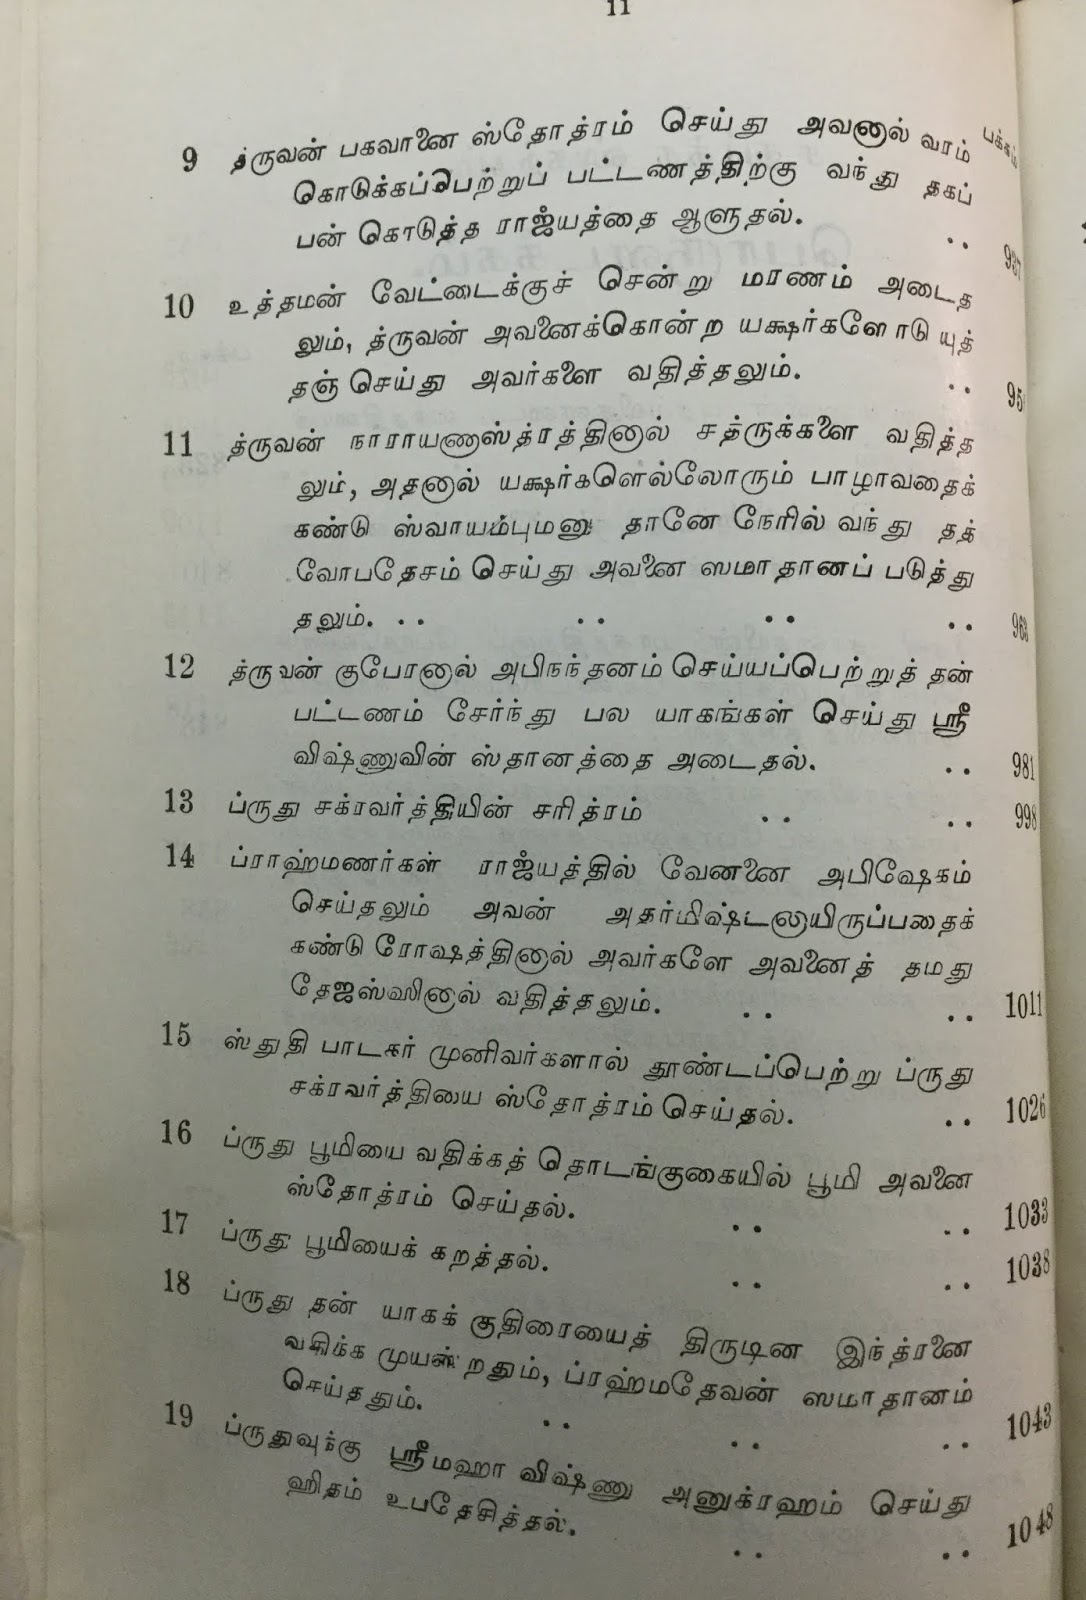 11
பக்கம்
9 த்ருவன் பகவானை ஸ்தோத்ரம் செய்து அவனால் வரம்
கொடுக்கப்பெற்றுப் பட்டணத்திற்கு வந்து தகப்
பன் கொடுத்த ராஜ்யத்தை ஆளுதல். .. 937
10 உத்தமன் வேட்டைக்குச் சென்று மரணம் அடைத
லும், த்ருவன் அவனைக்கொன்ற யக்ஷர்களோடு யுத்
தஞ் செய்து அவர்களை வதித்தலும். ..
11 த்ருவன் நாராயணாஸ்த்ரத்தினால் சத்ருக்களை வதித்த
லும், அதனால் யக்ஷர்களெல்லோரும் பாழாவதைக்
கண்டு ஸ்வாயம்புமனு தானே நேரில் வந்து தத்
வோபதேசம் செய்து அவனை ஸமாதானப் படுத்து
தலும். .. .. .. .. 963
12 த்ருவன் குபேரனால் அபிநந்தனம் செய்யப்பெற்றுத் தன்
பட்டணம் சேர்ந்து பல யாகங்கள் செய்து ஸ்ரீ
விஷ்ணுவின் ஸ்தானத்தை அடைதல். .. 981
13 ப்ருது சக்ரவர்த்தியின் சரித்ரம் .. .. 998
14 ப்ராஹ்மணர்கள் ராஜ்யத்தில் வேனனை அபிஷேகம்
செய்தலும் அவன் அதர்மிஷ்டனாயிருப்பதைக்
கண்டு ரோஷத்தினால் அவர்களே அவனைத் தமது
தேஜஸ்ஸினால் வதித்தலும். .. .. 1011
15 ஸ்துதி பாடகர் முனிவர்களால் தூண்டப்பெற்று ப்ருது
சக்ரவர்த்தியை ஸ்தோத்ரம் செய்தல். .. 1026
16 ப்ருது பூமியை வதிக்கத் தொடங்குகையில் பூமி அவனை
ஸ்தோத்ரம் செய்தல். .. .. 1033
17 ப்ருது பூமியைக் கறத்தல். .. .. 1038
18 ப்ருது தன் யாகக் குதிரையைத் திருடின இந்த்ரனை
வதிக்க முயன்றதும், ப்ரஹ்மதேவன் ஸமாதானம்
செய்ததும். .. .. .. 1043
19 ப்ருதுவுக்கு ஸ்ரீமஹா விஷ்ணு அனுக்ரஹம் செய்து
ஹிதம் உபதேசித்தல். .. .. 1048